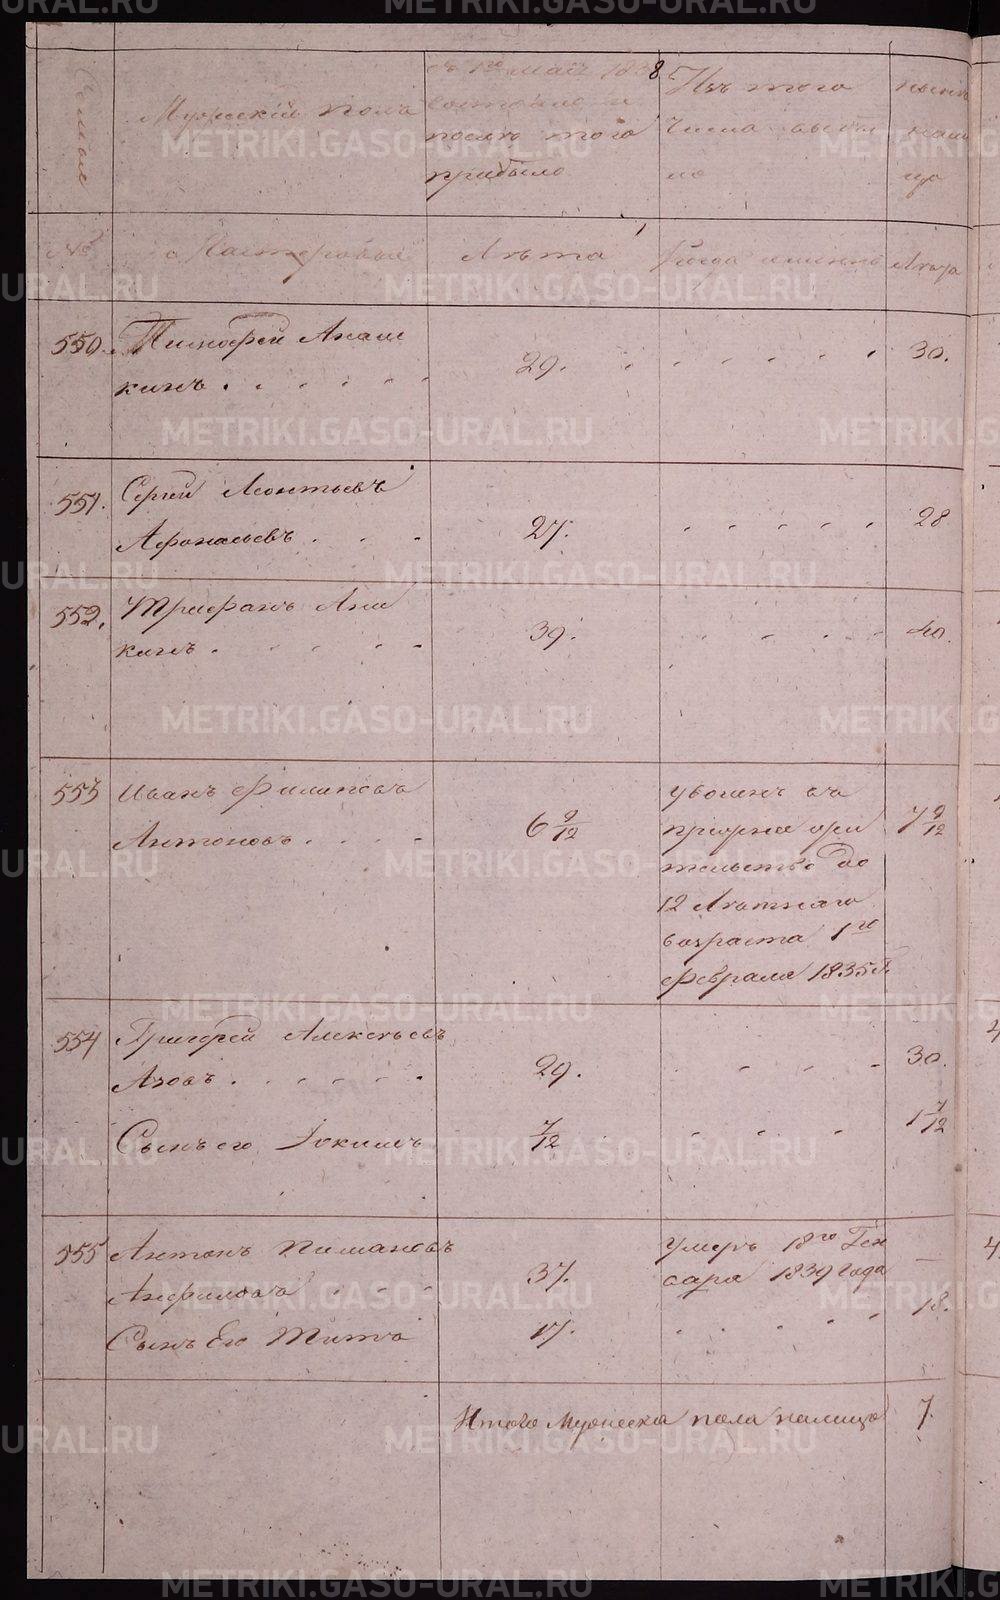 Семьи
Мужескiй полъ
съ 1го маiя 1838
состояло и
послѣ того
прибыло
Изъ того
числа выбы
ло
нынѣ
нали
цо
№
Мастеровые
Лѣта
Когда именно
Лѣта
550. Тимофей Анаш
кинъ . . . . . . 29. . . . . . . 30.
551. Сергей Леонтьевъ
Афонасьевъ . . . 27. . . . . . 28
552. Трифанъ Ани
кинъ . . . . . 39. . . . . 40.
553 Иванъ Филиповъ
Антоновъ . . . . 6 9/12
уволенъ въ
отельство до
12 Лѣтняго
возраста 1го
февраля 1835 г.
7 9/12
554 Григорей Алексѣевъ
Азовъ . . . . . . 29. . . . . 30.
Сынъ его Иокимъ 7/12 . . . 1 7/12
555 Антонъ
Анфиловъ . . . 37.
умеръ 18го Ген
варя 1839 года
—
Сынъ Его Титъ 17. . . . . . 18.
Итого Мужеска пола налицо 7.
METRIKI.GASO-URAL.RU